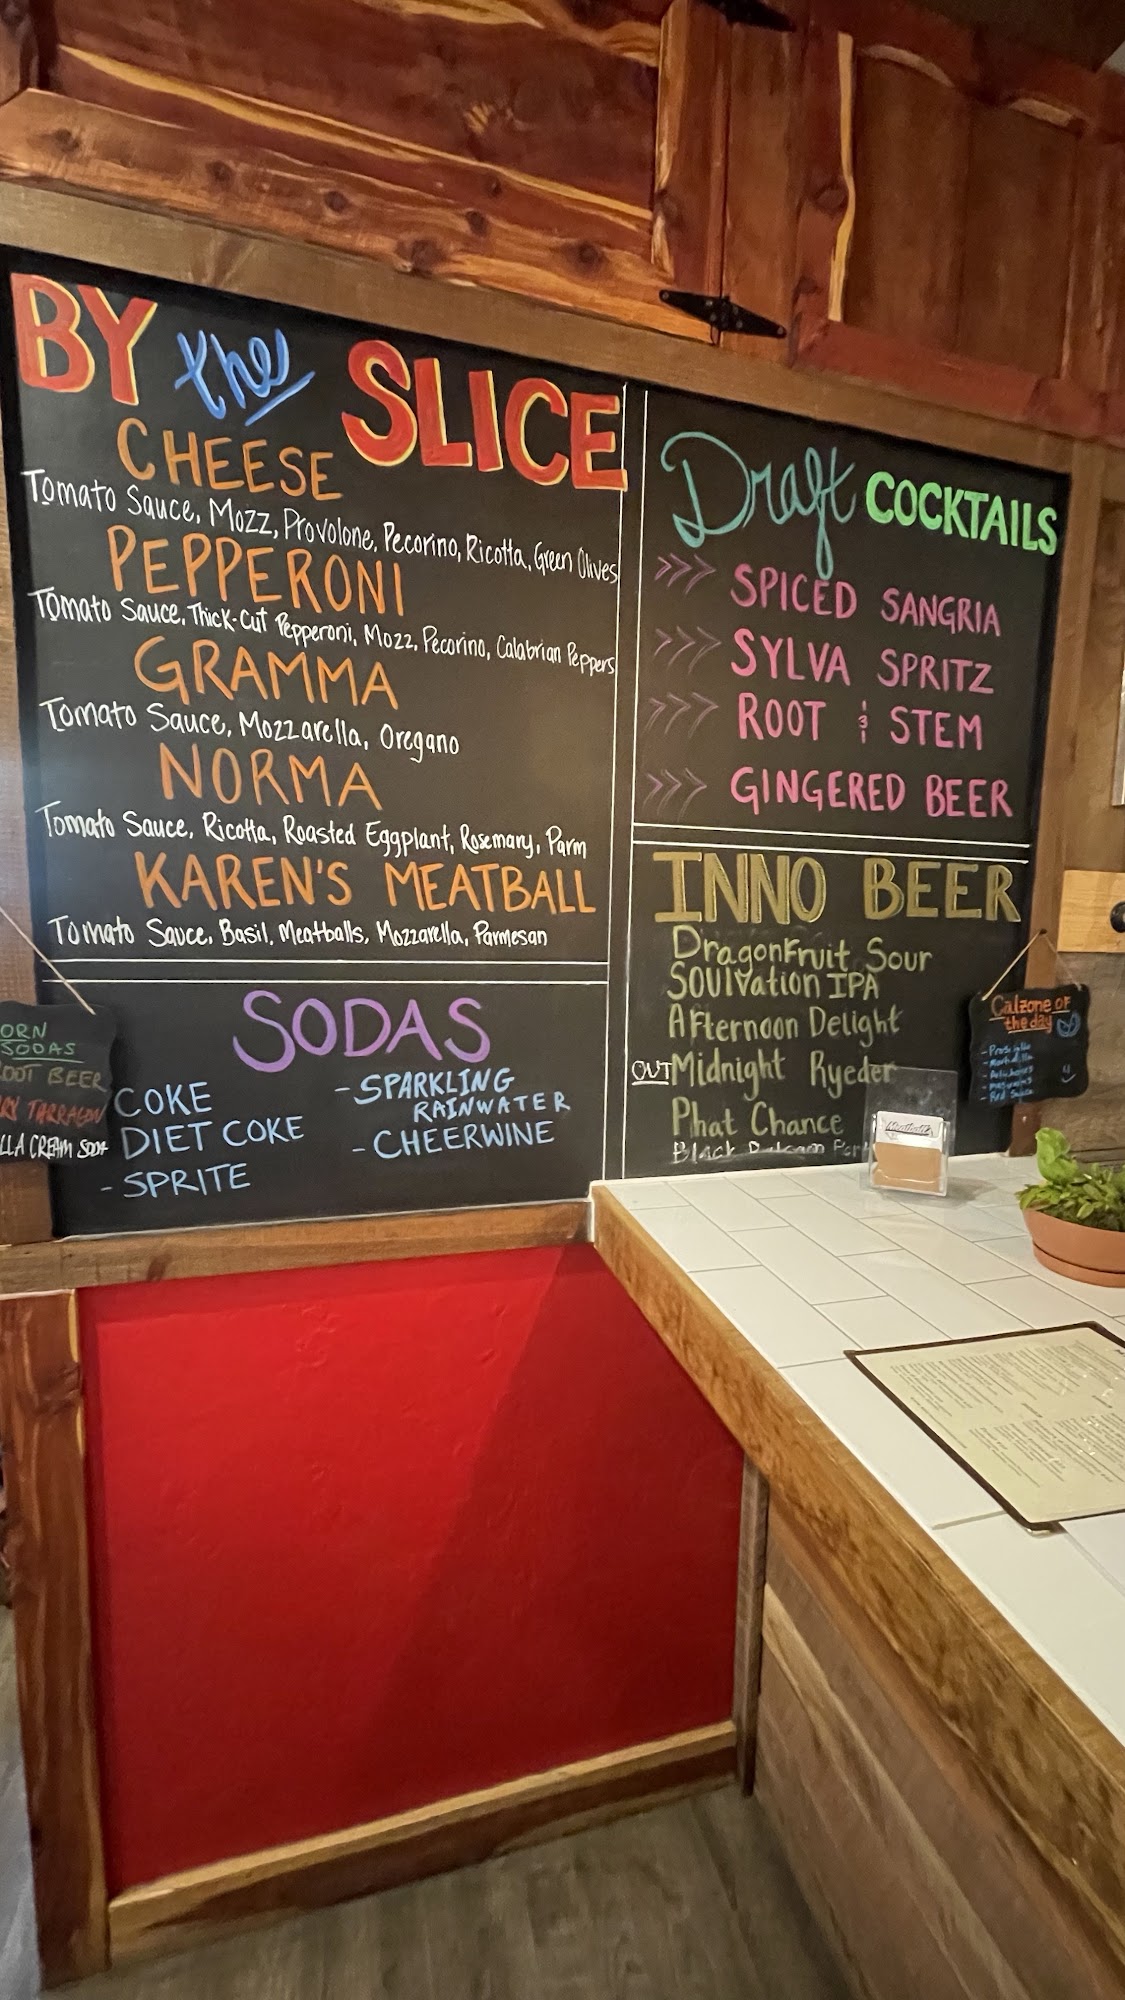 BY the SLICE
CHEESE
Tomato Sauce, Mozz, Provolone, Pecorino, Ricotta, Green Olives
PEPPERONI
Tomato Sauce, Thick-Cut Pepperoni, Mozz, Pecorino, Calabrian Peppers
GRAMMA
Tomato Sauce, Mozzarella, Oregano
NORMA
Tomato Sauce, Ricotta, Roasted Eggplant, Rosemary, Parm
KAREN'S MEATBALL
Tomato Sauce, Basil, Meatballs, Mozzarella, Parmesan
SODAS
COKE
DIET COKE
- SPRITE
- SPARKLING
RAINWATER
- CHEERWINE
ORN
SODAS
ROOT BEER
RY TARRAGON
LLA CREAM SODA
Draft COCKTAILS
>>> SPICED SANGRIA
>>> SYLVA SPRITZ
>>> ROOT & STEM
>>> GINGERED BEER
INNO BEER
DragonFruit Sour
SOULVation IPA
AFternoon Delight
OUT Midnight Ryeder
Phat Chance
Black
Calzone OF
the day
- Red Sauce